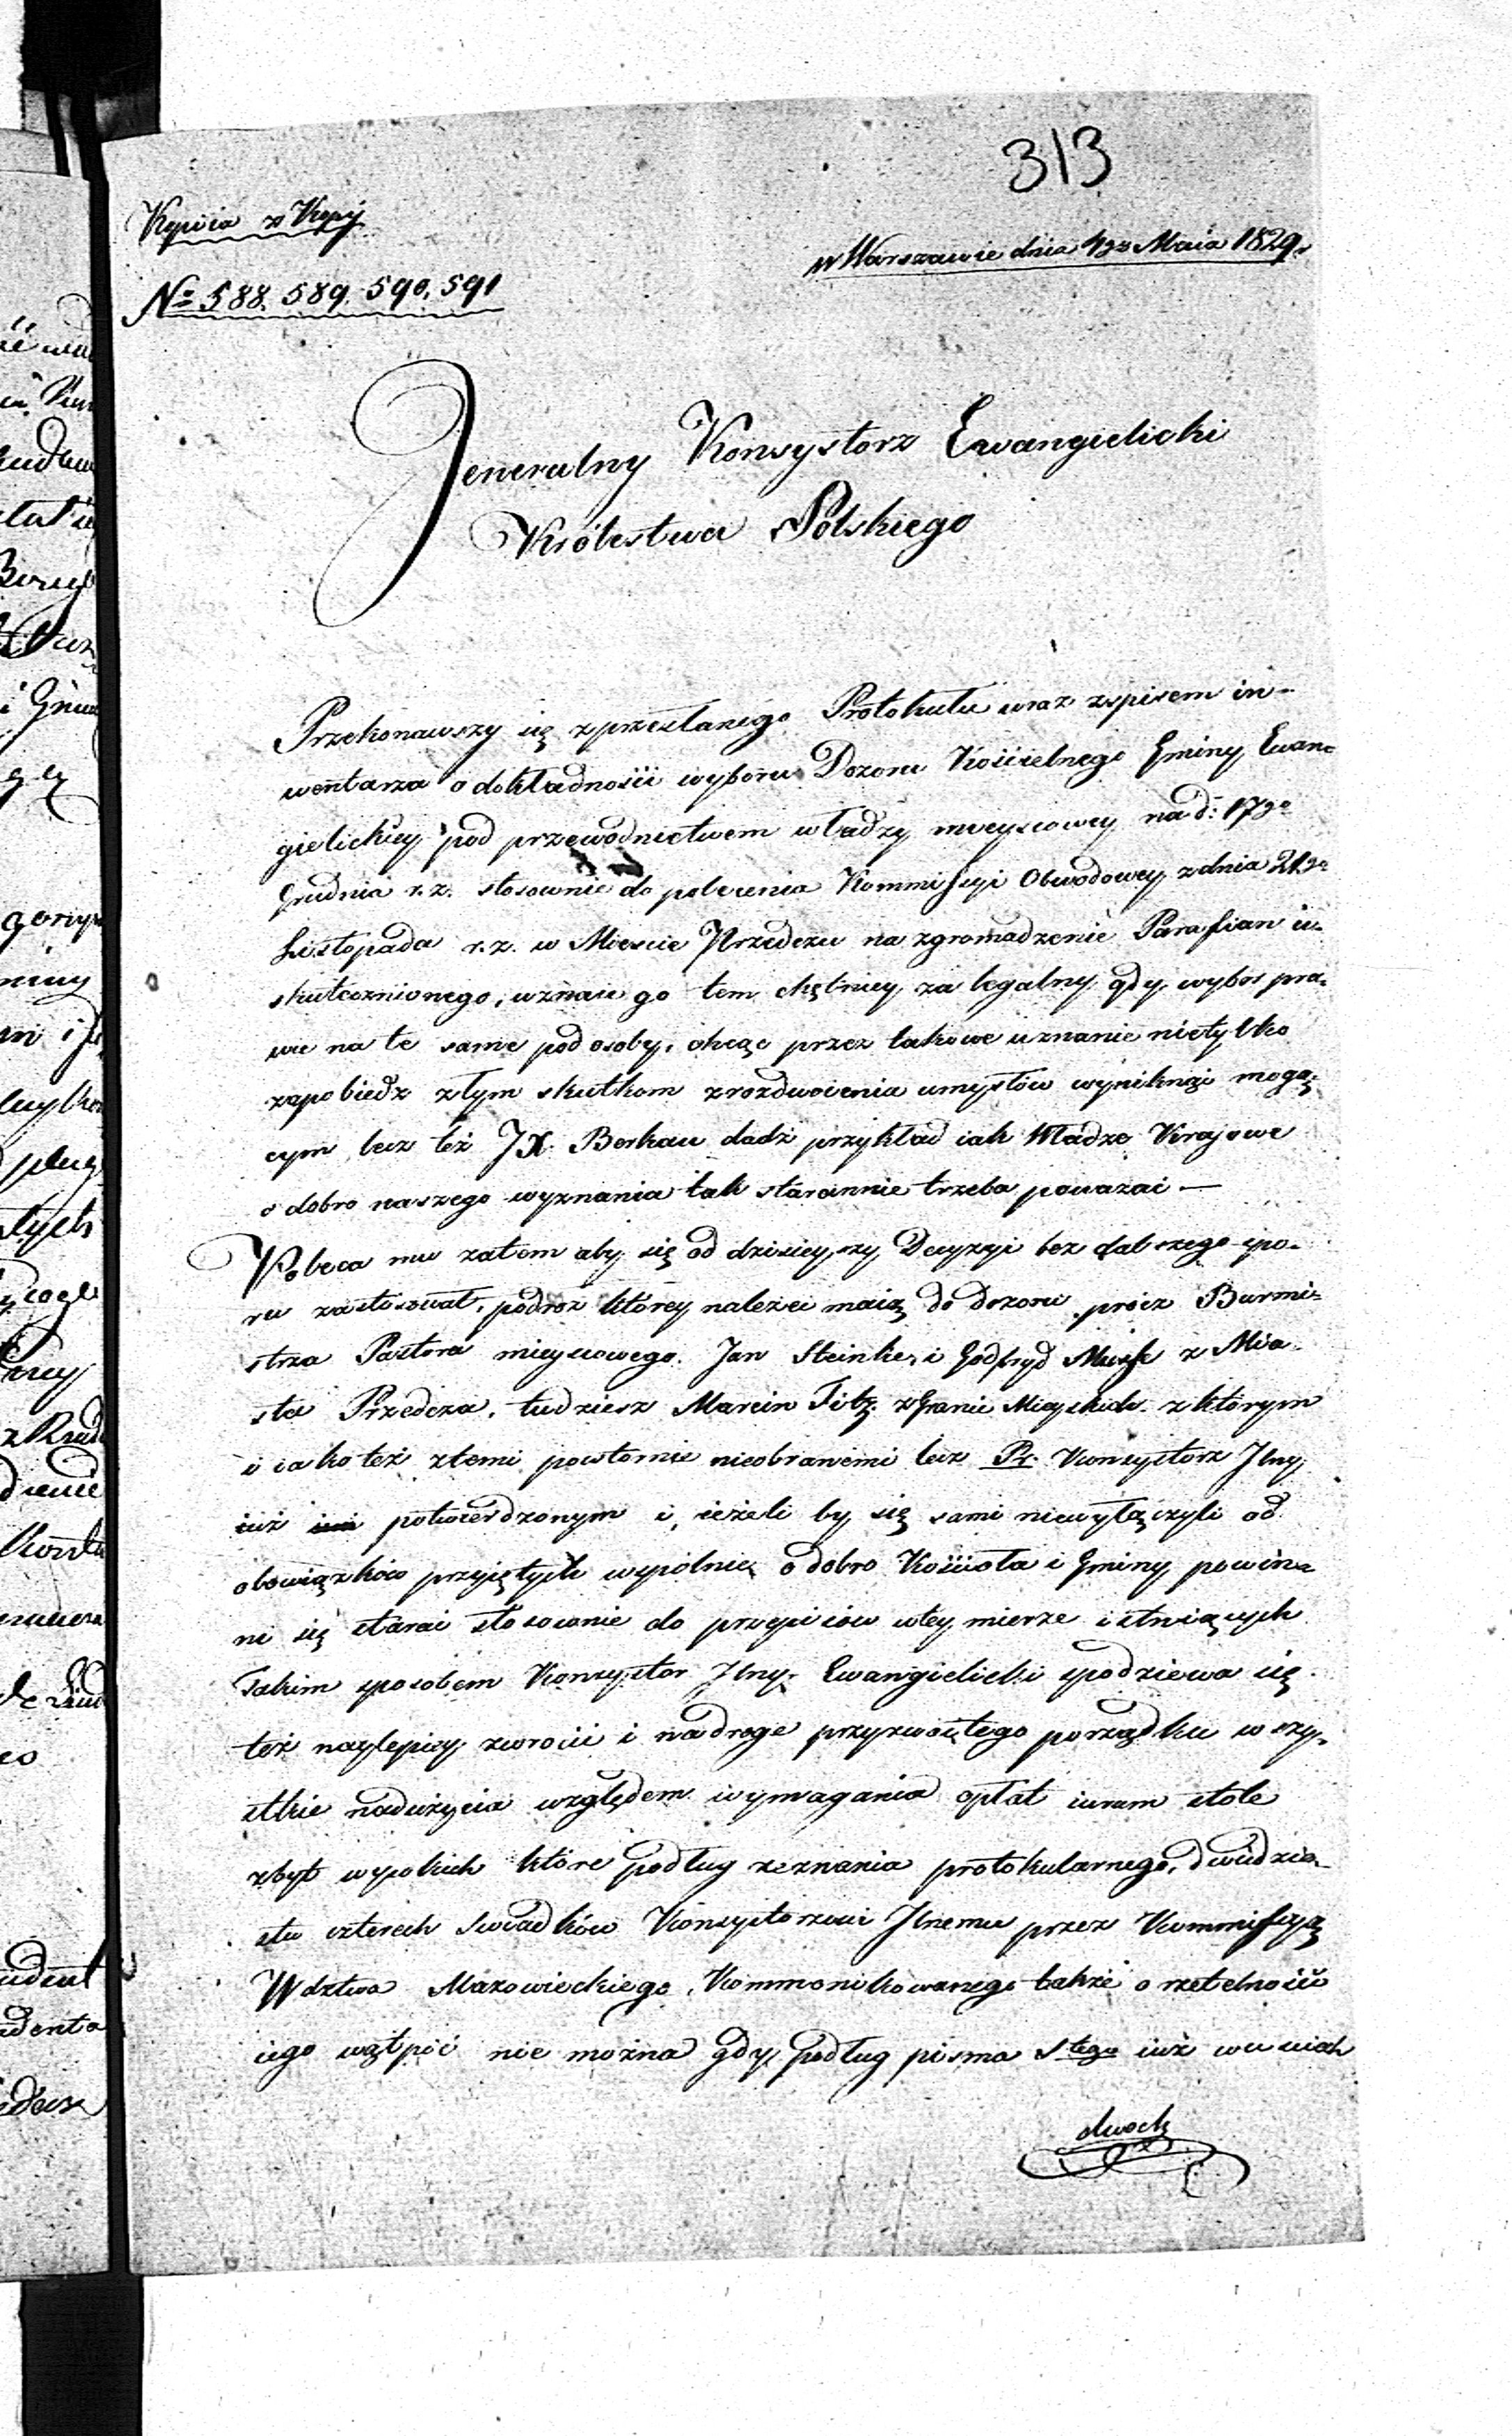 313
Kopiia z Kopij
w Warszawie dnia 4go Maia 1829.
No 588. 589. 590. 591
Jeneralny Konsystorz Ewangielicki
Królestwa Polskiego
Przekonawszy się z przesłanego Protokułu wraz z spisem in-
wentarza o dokładności wyboru Dozoru Kościelnego Gminy Ewan-
gielickiey pod przewodnictwem władzy mieyscowey na d: 17go
Grudnia r. z. stosownie do polecenia Kommissyi Obwodowey z dnia 21go
Listopada r. z. w Mieście Przedeczu na zgromadzenie Parafian iu-
skutecznionego, uznaie go tem chętniey za legalny gdy wybor pra-
wie na te same pod osoby, chcąc przez takowe uznanie nietylko
zapobiedz złym skutkom z rozdwoienia umysłów wyniknąć mogą-
cym lecz też JX. Berkau dadź przykład iak Władze Krajowe
o dobro naszego wyznania tak starannie trzeba poważać —
Poleca mu zatem aby się od dzisieyszy Decyzyi bez dalszego spo-
ru zastosował, podróż którey należeć maią do dozoru prócz Burmi-
strza Pastora mieyscowego. Jan Steinke, i Godfryd z Mia-
sta Przedcza, tudziesz Marcin Titz z Granic Mieyskich z którym
i iako też z temi powtornie nieobranemi lecz Pr. Konsystorz Jlny
iuż potwierdzonym i, ieżeli by się sami niewyłączyli od
obowiązków przyiętych wspólnie o dobro Kościoła i Gminy powin-
ni się starać stosownie do przepisów wtey mierze istniących
Takim sposobem Konsystor Jlny. Ewangielicki spodziewa się
też naylepiey zwrocić i na drogę przyzwoitego porządku wszy-
stkie nadużycia względem wymagania opłat iuram stole
zbyt wysokich które podług zeznania protokularnego, dwudzie-
stu czterech Swiadków Konsystorzowi Jlnemu przez Kommissyą
Wdztwa Mazowieckiego, Kommonikowanego także o rzetelności
iego wątpić nie można gdy podług pisma Stego iuż w usciach
dwoch